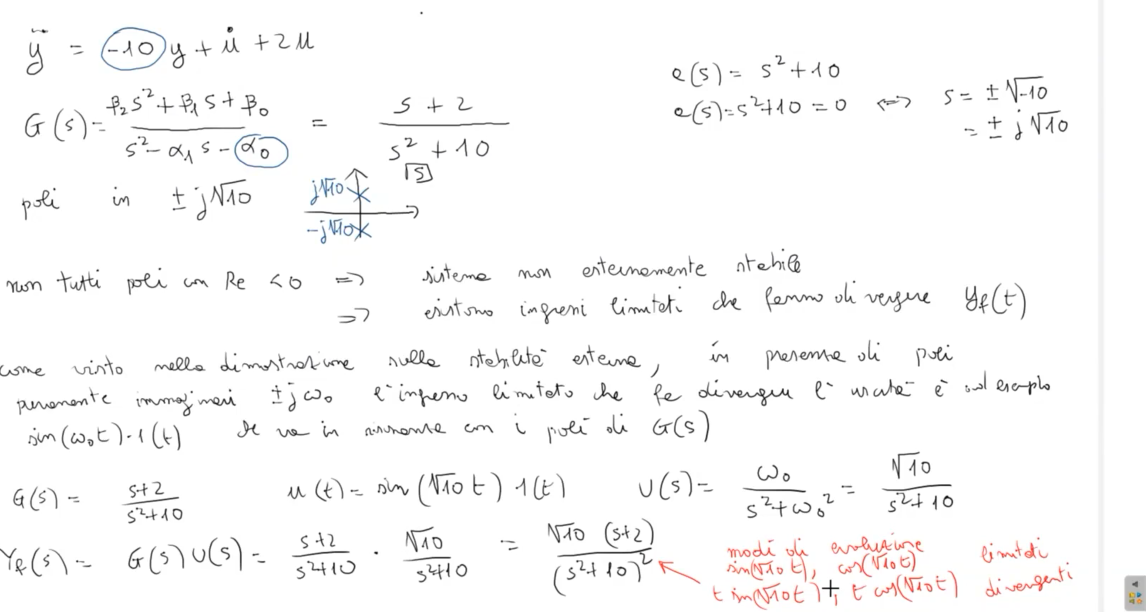 ÿ = -10 y + u̇ + 2u
G(s) = (β₂s² + β₁s + β₀) / (s² - α₁s - α₀) = (s + 2) / (s² + 10)
e(s) = s² + 10
e(s) = s² + 10 = 0 ⟺ s = ±√-10
= ± j√10
poli in ± j√10
[s]
j√10
-j√10
non tutti poli con Re < 0 => sistema non esternamente stabile
=> esistono ingressi limitati che fanno divergere yf(t)
come visto nella dimostrazione sulla stabilità esterna, in presenza di poli
puramente immaginari ±jω₀ l'ingresso limitato che fa divergere l'uscita è ad esempio
sin(ω₀t)·1(t) che va in risonanza con i poli di G(s)
G(s) = (s+2) / (s²+10) u(t) = sin(√10 t) 1(t) U(s) = ω₀ / (s²+ω₀²) = √10 / (s²+10)
Yf(s) = G(s) U(s) = (s+2) / (s²+10) · √10 / (s²+10) = √10 (s+2) / (s²+10)²
modi di evoluzione
sin(√10 t), cos(√10 t) limitati
t sin(√10 t), t cos(√10 t) divergenti